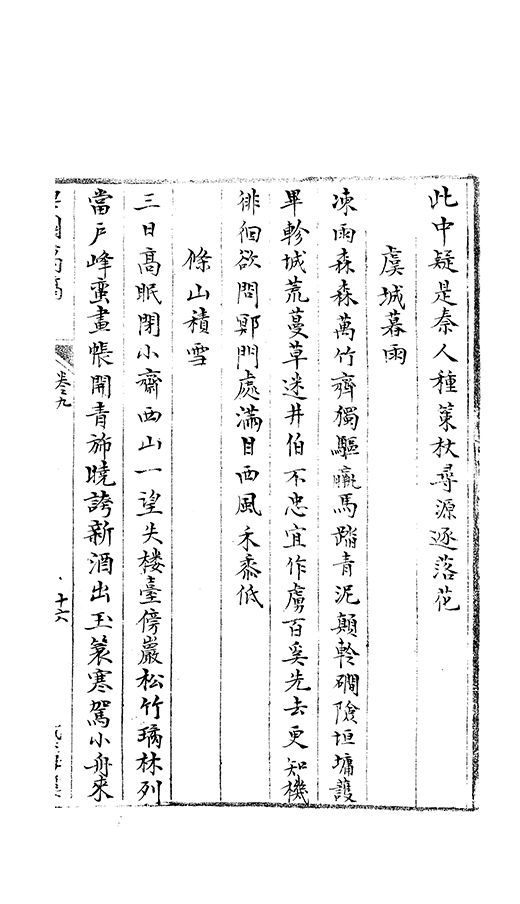 此中疑是秦人種策杖尋源逐落花
虞城暮雨
凍雨森森萬竹齊獨驅羸馬踏青泥顛軨磵隂垣墉護
畢軫城荒蔓草迷井伯不忠宜作虜百奚先去更知機
徘徊欲問鄍門處滿目西風禾黍低
條山積雪
三日高眠閉小齋西山一望失楼臺傍巖松竹璚林列
當戶峰巒畫帳開青斾曉誇新酒出玉簑寒駕小舟來
卷之九
十六